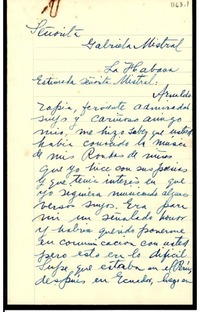 1163.1
Señorita
Gabriela Mistral
La Habana
Estimada señorita Mistral:
Arnaldo
Tapia, ferviente admirador
suyo y cariñoso amigo
mío, me hizo saber que usted
había conocido la música
de mis Rondas de niños
que yo hice con sus poesías
y que tenía interés en que
yo siguiera musicando algunos
versos suyos. Era para
mí un señalado honor
y habría querido ponerme
en comunicación con usted
pero esto era lo difícil
Supe, que estaba en el Perú,
después en Ecuador, luego en